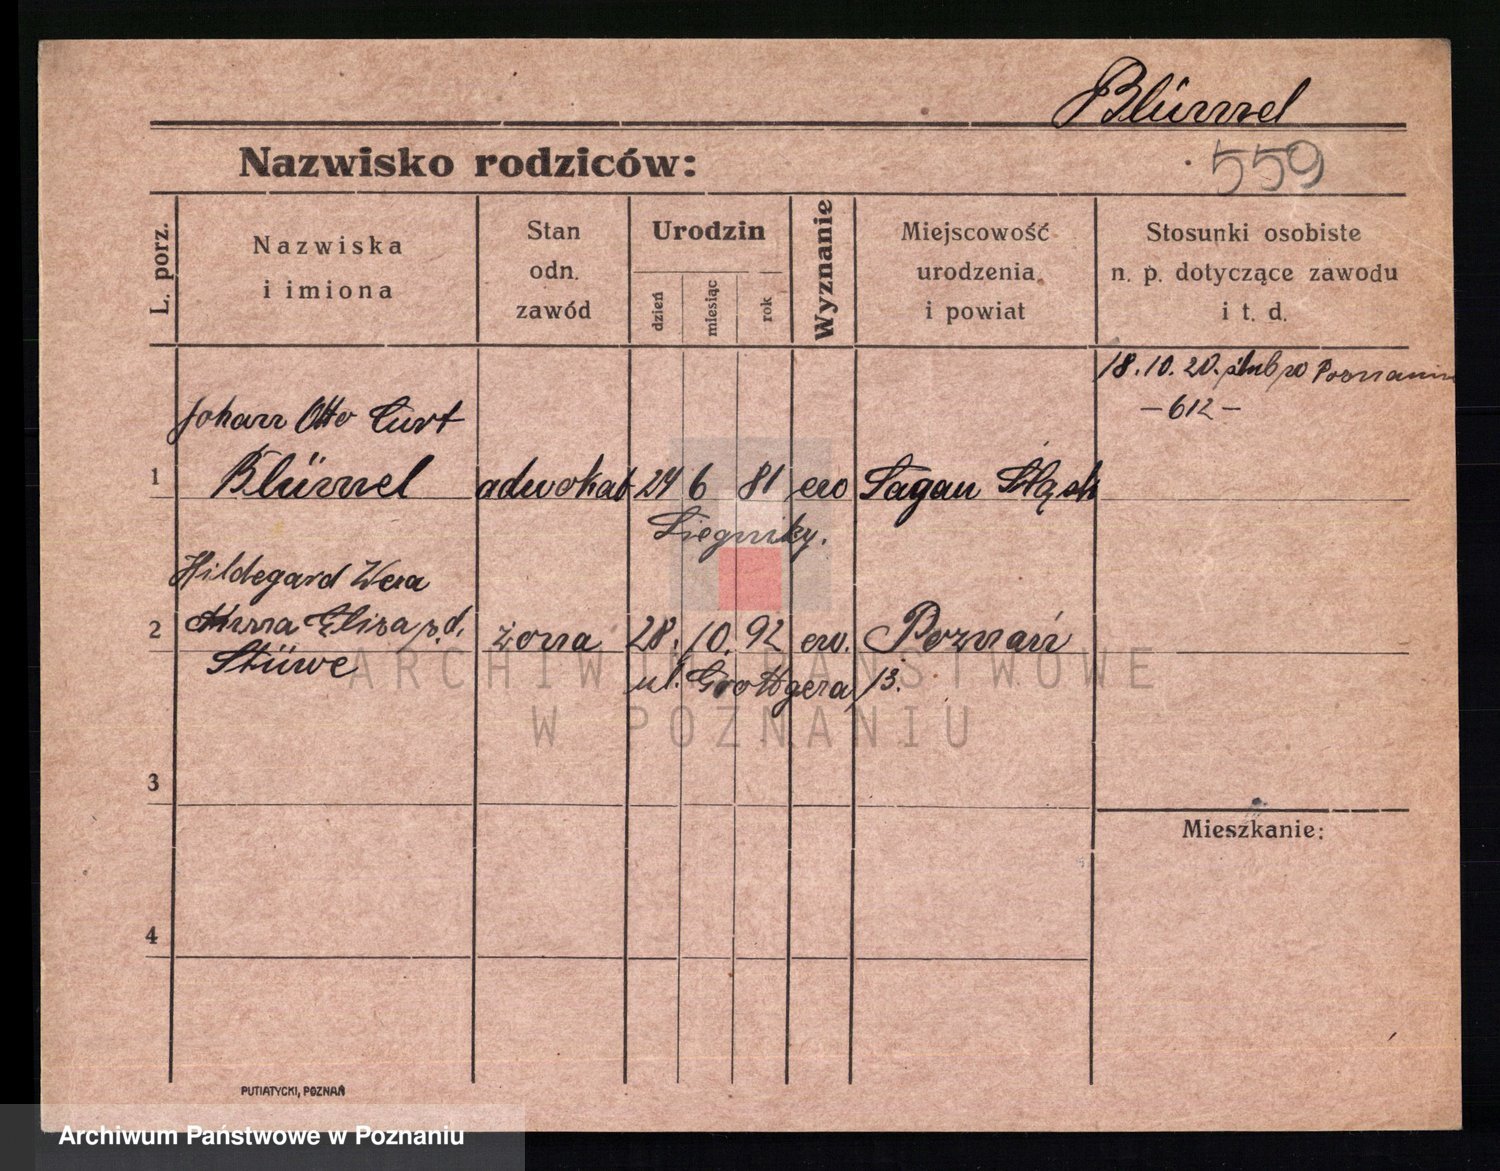 Blümel
559
Nazwisko rodziców:
L. porz.
Nazwiska
i imiona
Stan
odn.
zawód
Urodzin
dzień
miesiąc
rok
Wyznanie
Miejscowość
urodzenia
i powiat
Stosunki osobiste
n. p. dotyczące zawodu
i t. d.
18.10.20. ślub w Poznaniu
- 612 -
Johann Otto Curt
1 Blümel adwokat 24 6 81 ew Sagan Śląsk
Liegnitz.
Hildegard Wera
2 Anna Eliza z d. żona 28. 10. 92 ew. Poznań
Stüwe
ul. Grottgera 13.
3
Mieszkanie:
4
PUTIATYCKI, POZNAŃ
ARCHIWUM PAŃSTWOWE
W POZNANIU
Archiwum Państwowe w Poznaniu